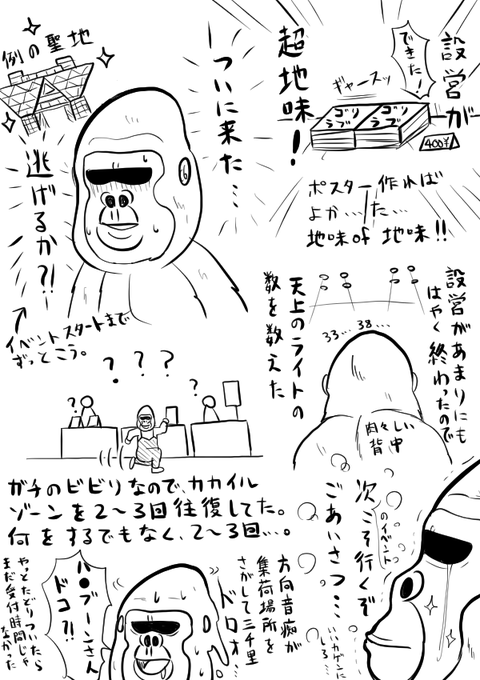 設営が
できた!
ギャースッ
ゴリ
ラブ
ゴリ
ラブ
400¥
超地味!
ポスター作れば
よか…った…
地味of 地味!!
ついに来た…
例の聖地
逃げるか?!
イベントスタートまで
ずっとこう。
設営があまりにも
はやく終わったので
天上のライトの
数を数えた
33…38…
肉々しい
背中
? ? ?
?
?
ガチのビビりなので、カカイル
ゾーンを2〜3回往復してた。
何をするでもなく、2〜3回…。
次こそ行くぞ
のイベント
ごあいさつ…
いいカゲンに
しろ…
方向音痴が
集荷場所を
さがして三千里
ドロォ
ハ●ブーンさん
ドコ?!
やっとたどりついたら
まだ受付時間じゃ
なかった